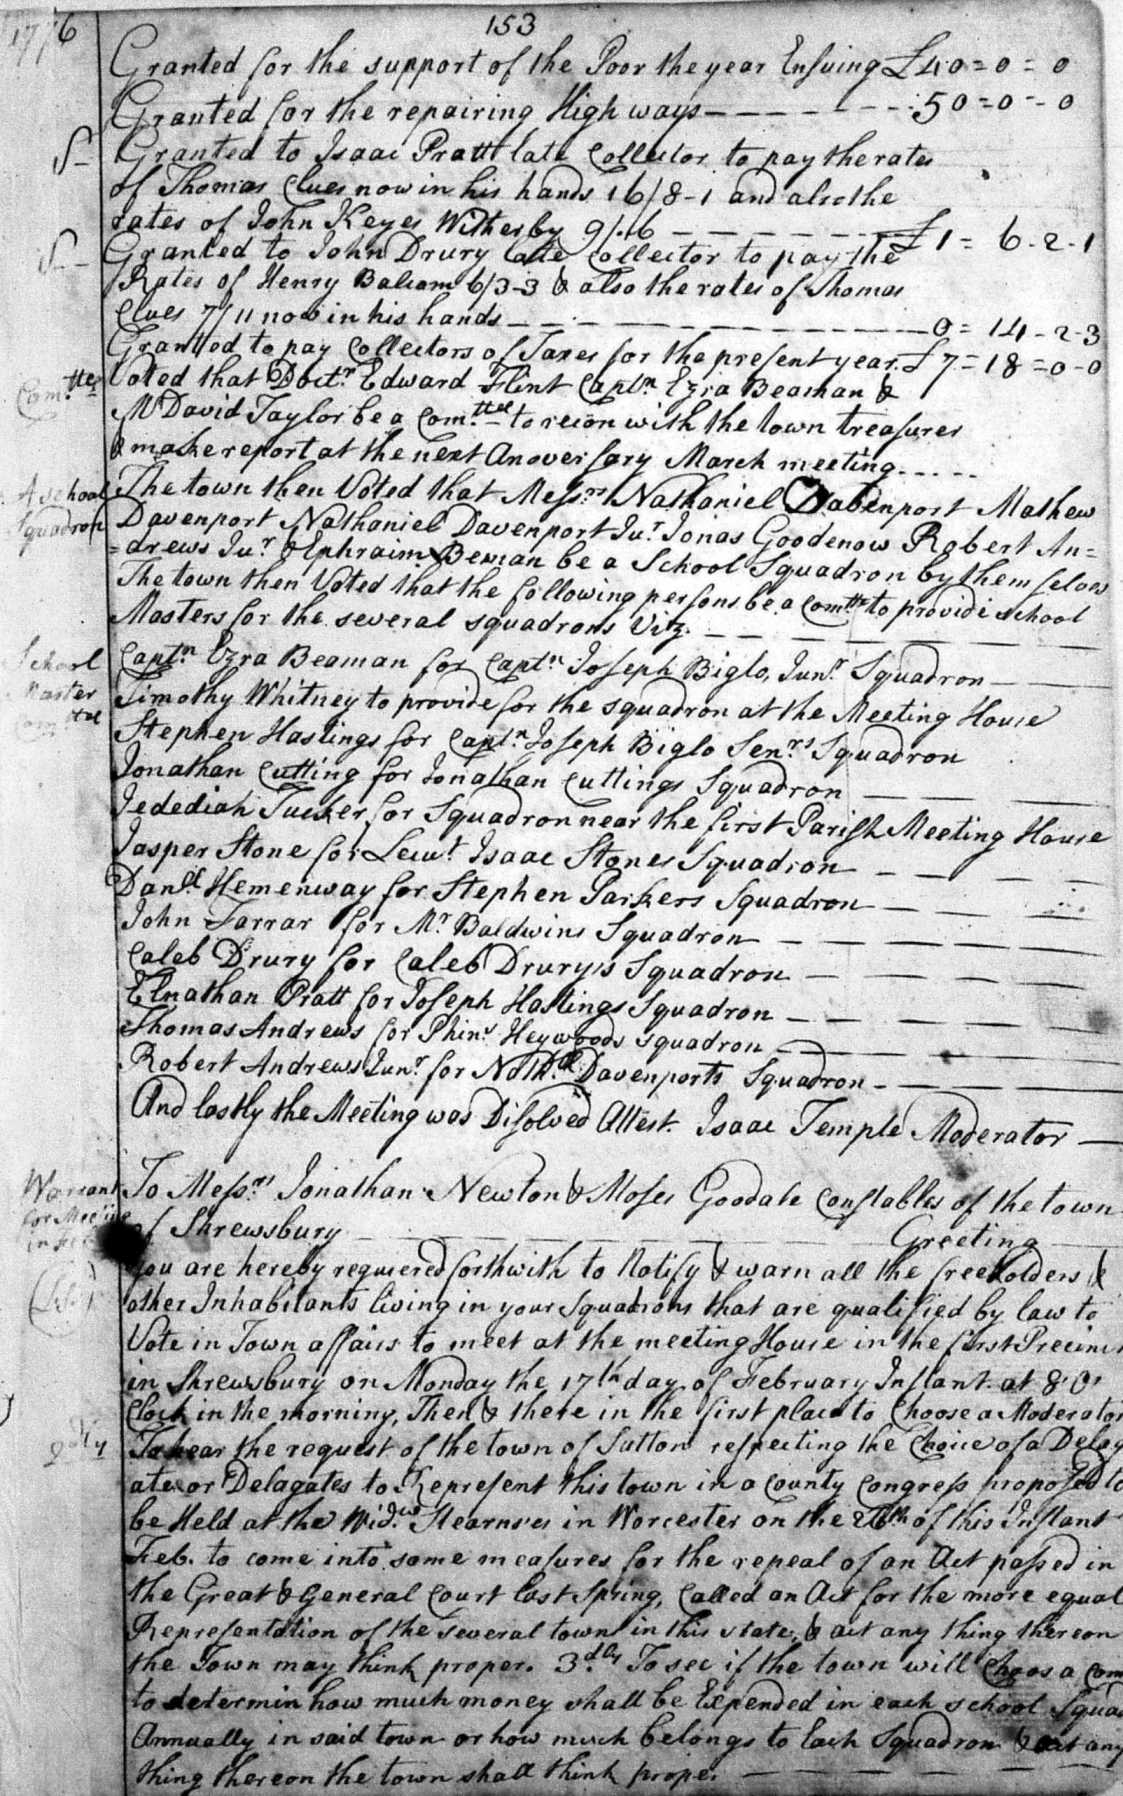 1776
153
Granted for the support of the Poor the year Ensuing £ 40=0=0
Granted for the repairing High ways - - - - - - 50=0=-0
Granted to Isaac Pratt late Collector to pay the rates
of Thomas Clues now in his hands 16/8-1 and also the
rates of John Keyes Witherby 9/.6 - - - - - £1=6-2-1
Granted to John Drury late Collector to pay the
Rates of Henry Balcom 6/3-3 & also the rates of Thomas
Clues 7/11 now in his hands - - - - - - 0=14-2-3
Granted to pay Collectors of Taxes for the present year. £7=18=0-0
Comttee
Voted that Doctr Edward Flint Captn Ezra Beaman &
Mr David Taylor be a Comttee to recon with the town treasurer
& make report at the next Anoversary March meeting - - - - -
A school
Squadron
The town then Voted that Messrs Nathaniel Davenport Mathew
Davenport Nathaniel Davenport Jur Jonas Goodenow Robert An=
=drews Jur & Ephraim Beman be a School Squadron by them selves
The town then Voted that the following persons be a comtte to provide school
Masters for the several squadrons Vitz. - - - - -
School
Master
Comttee
Captn Ezra Beaman for Captn Joseph Biglo, Junr Squadron - -
Timothy Whitney to provide for the squadron at the Meeting House
Stephen Hastings for Captn Joseph Biglo Senrs Squadron
Jonathan Cutting for Jonathan Cuttings Squadron - - -
Jedediah Tucker for Squadron near the first Parish Meeting House
Jasper Stone for Leut Isaac Stones Squadron - - - -
Danll Hemenway for Stephen Parkers Squadron - - - -
John Farrar for Mr Baldwins Squadron - - - - -
Caleb Drury for Caleb Drury's Squadron - - - - -
Elnathan Pratt for Joseph Hastings Squadron - - - -
Thomas Andrews for Phins Heywoods squadron - - - -
Robert Andrews Junr for Nathll Davenports Squadron - - -
And lastly the Meeting was Disolved Attest. Isaac Temple Moderator -
Warrant
for Meeting
To Messrs Jonathan Newton & Moses Goodale constables of the town
of Shrewsbury - - - - - - Greeting - -
You are hereby requiered forthwith to Notify & warn all the freeholders &
other Inhabitants living in your Squadrons that are qualified by law to
Vote in Town affairs to meet at the meeting House in the first Precinct
in Shrewsbury on Monday the 17th day of February Instant at 8 'O'
Clock in the morning, Then & there in the first place to Choose a Moderator
2dly
To hear the request of the town of Sutton respecting the Choice of a Deleg
ate or Delagates to Represent this town in a County Congress proposed to
be Held at the Widw Stearns'es in Worcester on the 26th of this Instant
Feb. to come into some measures for the repeal of an Act passed in
the Great & General Court last Spring, Called an Act for the more equal
Representation of the several town in this state, & act any thing thereon
the Town may think proper. 3dly To see if the town will Choos a Com
to determin how much money shall be Expended in each school Squad
Annually in said town or how much belongs to Each Squadron & act any
thing thereon the town shall think proper - - - - -